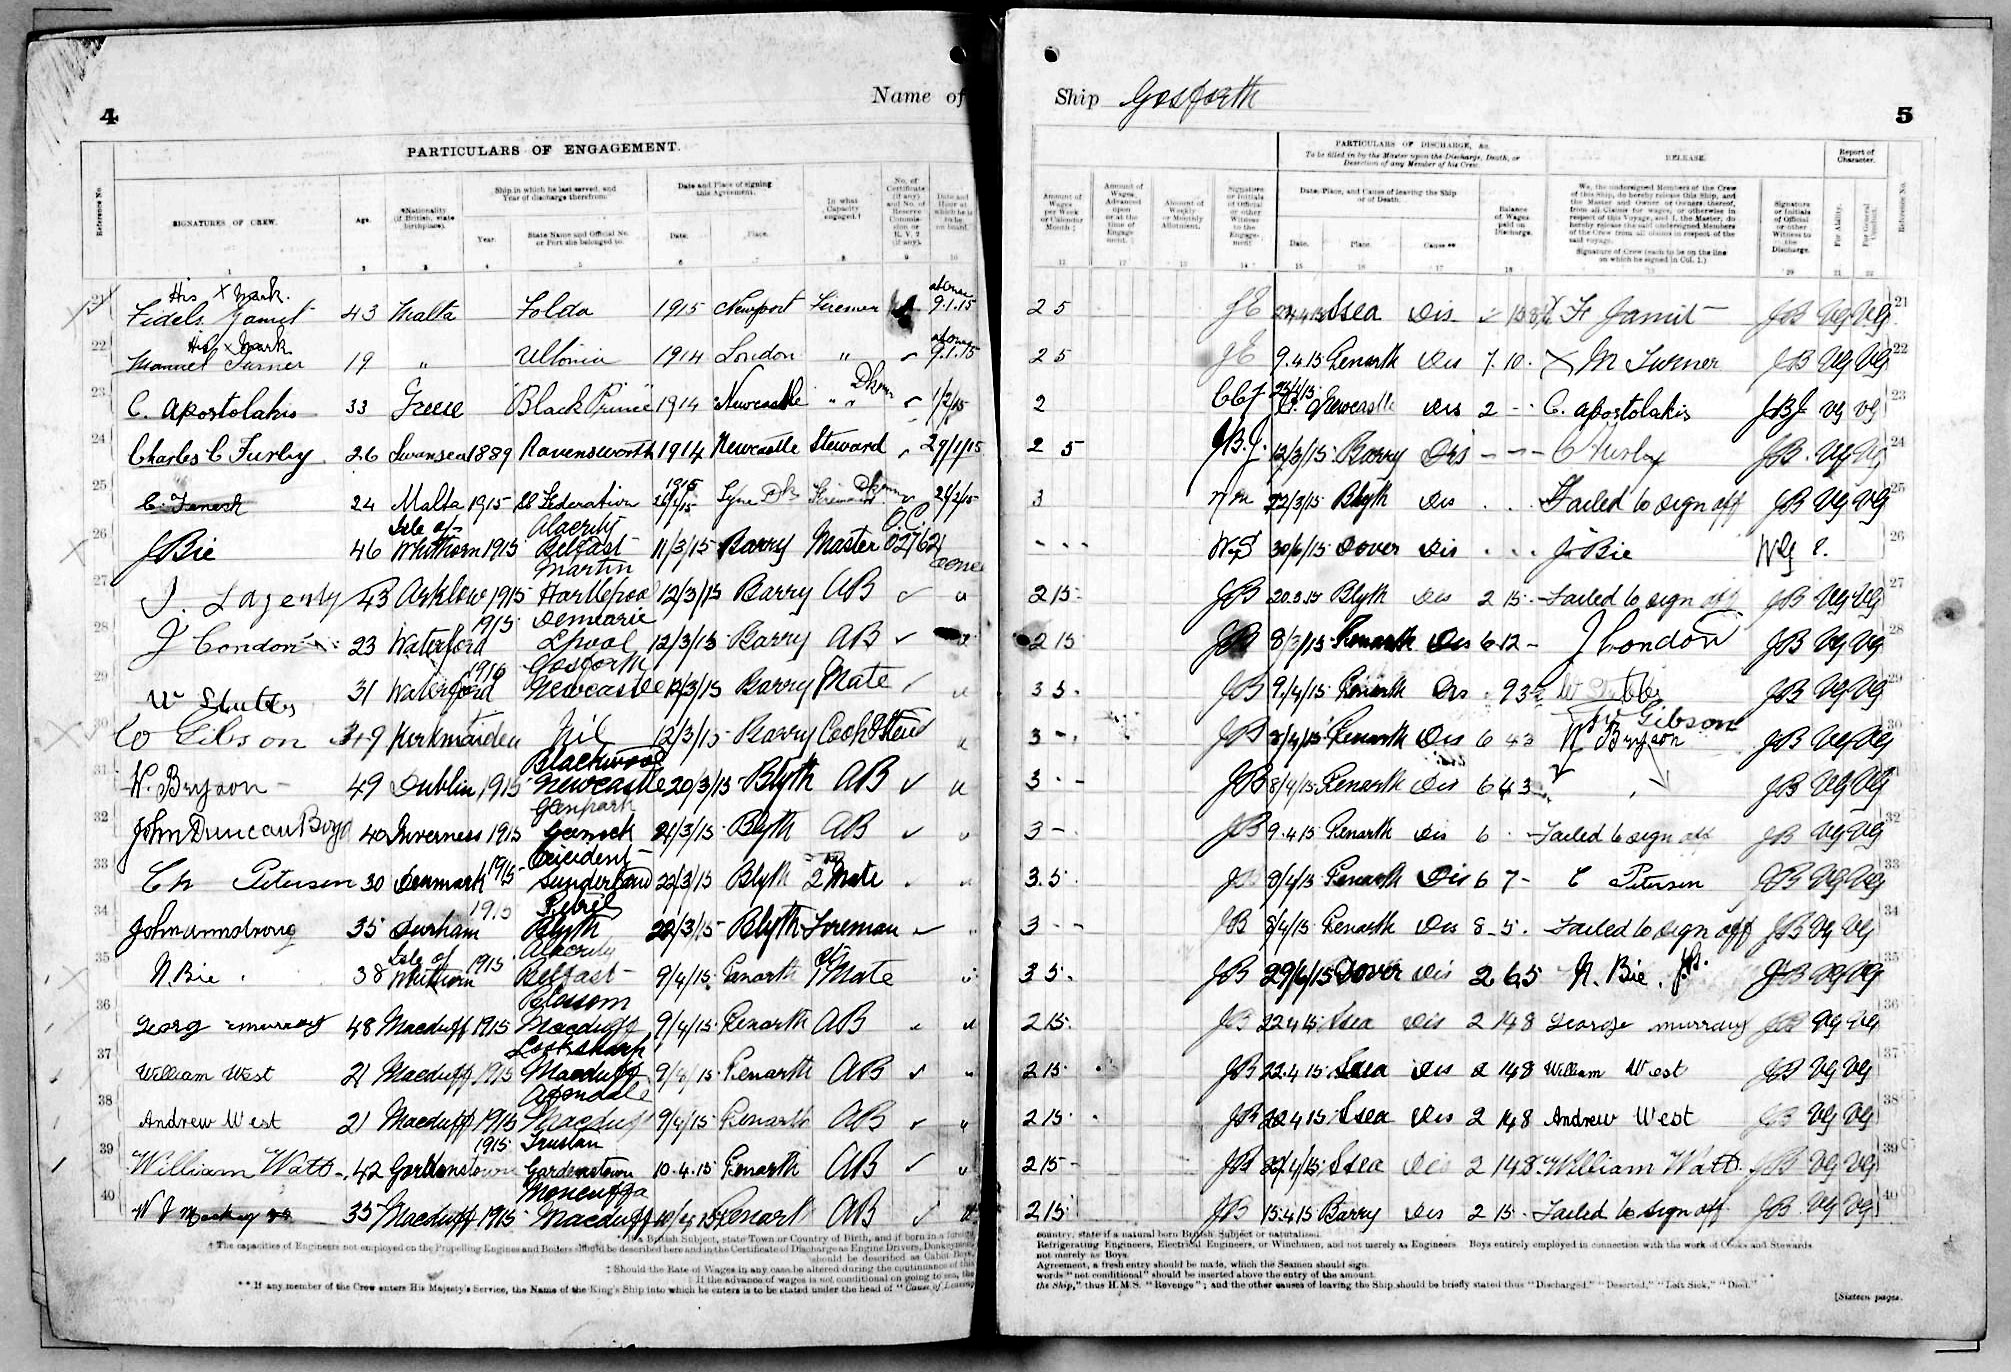 4
Name of
PARTICULARS OF ENGAGEMENT.
Reference No.
SIGNATURES OF CREW.
Age.
*Nationality (if British, state birthplace).
Ship in which he last served, and Year of discharge therefrom.
Year.
State Name and Official No. or Port she belonged to.
Date and Place of signing this Agreement.
Date.
Place.
In what Capacity engaged.†
No. of Certificate (if any)
1 2 3 4 5 6 7 8 9 10
21 His X Mark. Fidele Gamit 43 Malta Folda 1915 Newport Firemen at once 9.1.15
22 His X Mark Manuel Turner 19 " Ultonia 1914 London " at once 9.1.15
23 C. Apostolakis 33 Greece "Black Prince" 1914 Newcastle " " Dkman 1/2/15
24 Charles C Furby 26 Swansea 1889 Ravensworth 1914 Newcastle Steward 29/1/15
25 C. Fenech 24 Malta 1915 Federation 1915 Tyne Dk Fireman Dkman
26 J Bie 46 Isle of Whithorn 1915 Alacrity Belfast 11/3/15 Barry Master O.C. 02762
27 43 Arklow 1915 Martin Hartlepool 12/3/15 Barry AB
28 J Condon 23 Waterford 1915 Demearie Lpool 12/3/15 Barry AB
29 W Stubbs 31 Waterford Gosforth Newcastle 12/3/15 Barry Mate
30 W Gibson 49 Kirkmaiden Nil 12/3/15 Barry Cook & Stewd
31 W. Bryson 49 Dublin 1915 Blackwood Newcastle 20/3/15 Blyth AB
32 John Duncan Boyd 40 Inverness 1915 Glenpark Greenock 21/3/15 Blyth AB
33 Ch Petersen 30 Denmark 1915 Occident Sunderland 22/3/15 Blyth 2 Mate
34 John Armstrong 35 Durham 1915 Blyth 22/3/15 Blyth Foreman
35 N. Bie 38 Isle of Whithorn 1915 Alacrity Belfast 9/4/15 Penarth 1 Mate
36 Georg Murray 48 Macduff 1915 Blossom Macduff 9/4/15 Penarth AB
37 William West 21 Macduff 1915 Looksharp Macduff 9/4/15 Penarth AB
38 Andrew West 21 Macduff 1915 Avondale Macduff 9/4/15 Penarth AB
39 William Watt 42 Gardenstown 1915 Truston Gardenstown 10.4.15 Penarth AB
40 35 Macduff 1915 Moncuffa Macduff 10/4/15 Penarth AB
* If a British Subject, state Town or Country of Birth, and if born in a foreign
† The capacities of Engineers not employed on the Propelling Engines and Boilers should be described here and in the Certificate of Discharge as Engine Drivers, Donkeymen,
should be described as Cabin Boys,
‡ Should the Rate of Wages in any case be altered during the continuance of this
If the advance of wages is not conditional on going to sea, the
** If any member of the Crew enters His Majesty's Service, the Name of the King's Ship into which he enters is to be stated under the head of "Cause of Leaving
Ship Gosforth
5
PARTICULARS OF DISCHARGE, &c.
To be filled in by the Master upon the Discharge, Death, or Desertion of any Member of his Crew.
RELEASE.
Report of Character.
Amount of Wages per Week or Calendar Month ‡
Amount of Wages Advanced upon or at the time of Engagement.
Amount of Weekly or Monthly Allotment.
Signature or Initials of Official or other Witness to the Engagement
Date, Place, and Cause of leaving the Ship or of Death.
Date.
Place.
Cause **
Balance of Wages paid on Discharge.
We, the undersigned Members of the Crew of this Ship, do hereby release this Ship, and the Master and Owner or Owners thereof, from all Claims for wages, or otherwise in respect of this Voyage, and I, the Master, do hereby release the said undersigned Members of the Crew from all claims in respect of the said voyage.
Signature of Crew (each to be on the line on which he signed in Col. 1.)
Signature or Initials of Official or other Witness to the Discharge.
For Ability.
For General Conduct.
Reference No.
11 12 13 14 15 16 17 18 19 20 21 22
2 5 JE Ssea Dis F Jamit JB VG VG 21
2 5 JE 9.4.15 Penarth Dis 7.10. X M Turner JB VG VG 22
2 Newcastle Dis 2 C. Apostolakis JBJ VG VG 23
2 5 JB.J. 12/3/15 Barry Dis C Furby JB. VG VG 24
3 22/3/15 Blyth Dis Failed to sign off JB VG VG 25
30/6/15 Dover Dis J. Bie 26
2 15 JB 20.3.15 Blyth Dis 2 15 Failed to sign off JB VG VG 27
2 15 JB Penarth Dis 6 12 J Condon JB VG VG 28
3 5. JB 9/4/15 Penarth Dis W Stubbs JB VG VG 29
3 JB 8/4/15 Penarth Dis 6 4 3 W Gibson W Bryson JB VG VG 30
3 JB 8/4/15 Penarth Dis 6 4 3 JB VG VG
3 JB 9.4.15 Penarth Dis 6 Failed to sign off JB VG VG 32
3. 5. JB 8/4/15 Penarth Dis 6 7 C Petersen JB VG VG 33
3 JB 8/4/15 Penarth Dis 8.5. Failed to sign off JB VG VG 34
3 5. JB 29/6/15 Dover Dis 2 6 5 N. Bie. JB VG VG 35
2 15. JB 22.4.15 Ssea Dis 2 14 8 George Murray JB VG VG 36
2 15 JB 22.4.15 Ssea Dis 2 14 8 William West JB VG VG 37
2 15 JB 22.4.15 Ssea Dis 2 14 8 Andrew West JB VG VG 38
2 15 JB 22/4/15 Ssea Dis 2 14 8 William Watt JB VG VG 39
2 15 JB 15.4.15 Barry Dis 2 15. Failed to sign off JB VG VG 40
country, state if a natural born British Subject or naturalized.
Refrigerating Engineers, Electrical Engineers, or Winchmen, and not merely as Engineers. Boys entirely employed in connection with the work of Cooks and Stewards
not merely as Boys.
Agreement, a fresh entry should be made, which the Seamen should sign.
words "not conditional" should be inserted above the entry of the amount.
the Ship," thus H.M.S. "Revenge"; and the other causes of leaving the Ship should be briefly stated thus "Discharged," "Deserted," "Left Sick," "Died."
[Sixteen pages.